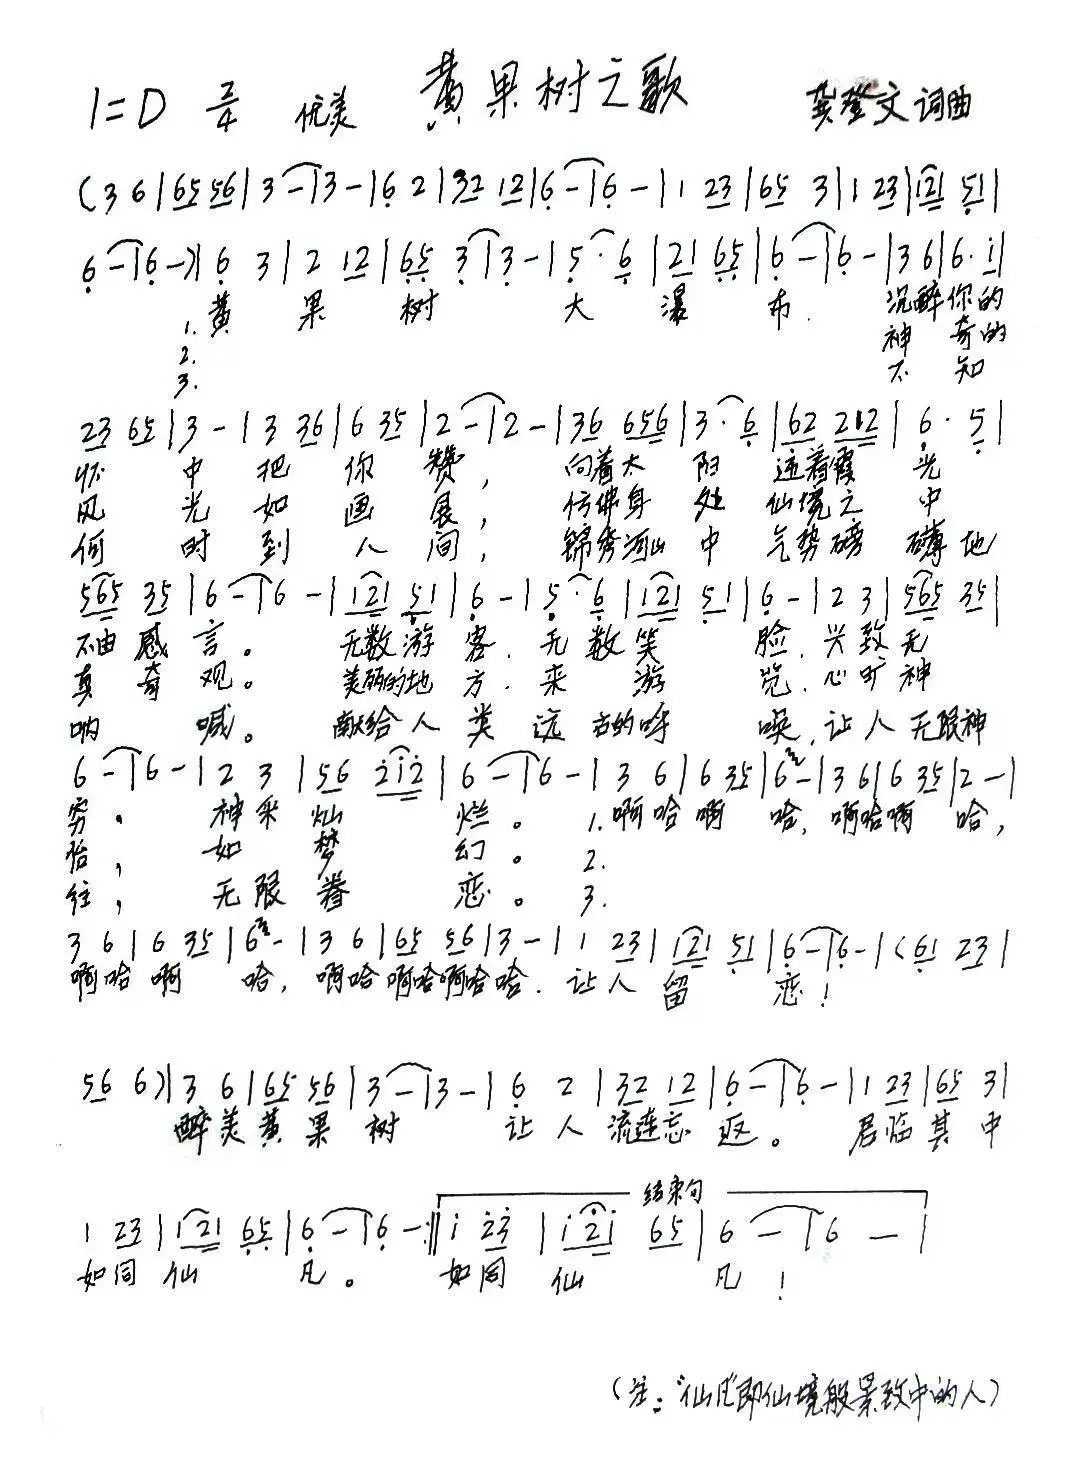 1=D 2/4 优美 黄果树之歌 龚登文词曲
(3 6|65 56|3 -|3 -|6 2|32 12|6 -|6 -|1 23|65 3|1 23|121 51|
6 -|6 -)|6 3|2 12|65 3|3 -|5· 6|21 65|6 -|6 -|3 6|6· i|
1. 黄 果 树 大 瀑 布. 沉醉你的
2. 神 奇的
3. 不 知
23 65|3 -|3 36|6 35|2 -|2 -|36 656|3· 6|62 212|6· 5|
怀 中 把 你 赞, 向着太 阳 迎着霞 光
风 光 如 画 展, 仿佛身 处 仙境之 中
何 时 到 人 间, 锦秀河山 中 气势磅 礴地
565 35|6 -|6 -|121 51|6 -|5· 6|121 51|6 -|2 3|565 35|
不由 感 言。 无数游 客. 无 数 笑 脸. 兴致无
真 奇 观。 美丽的地 方. 来 游 览. 心旷 神
呐 喊。 献给人 类 远 古的呼 唤, 让人 无限神
6 -|6 -|2 3|56 2i2|6 -|6 -|3 6|6 35|6 -|3 6|6 35|2 -|
穷。 神采灿 烂。 1. 啊哈啊 哈, 啊哈啊 哈,
怡, 如 梦 幻。 2.
往, 无限眷 恋。 3.
3 6|6 35|6 -|3 6|65 56|3 -|1 23|121 51|6 -|6 -|(61 23|
啊哈 啊 哈, 啊哈 啊哈啊哈哈. 让人 留 恋!
56 6)|3 6|65 56|3 -|3 -|6 2|32 12|6 -|6 -|1 23|65 3|
醉美黄果 树 让 人 流连忘 返。 君临其中
结束句
1 23|121 65|6 -|6 -:‖i 23|i2i 65|6 -|6 -|
如同 仙 凡。 如同 仙 凡!
(注:“仙凡”即仙境般景致中的人)